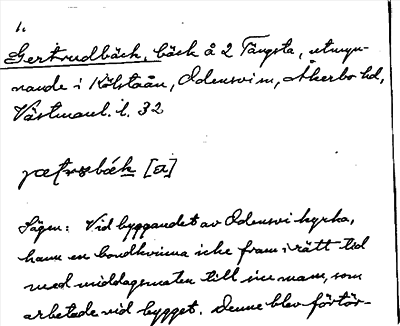 1.
Gertrudbäck, bäck å 2 Tångsta, utmyn-
nande i Kölstaån, Odensvi sn, Åkerbo hd,
Västmanl. l. 32
Sägn: Vid byggandet av Odensvi kyrka,
hann en bondkvinna icke fram i rätt tid
med middagsmaten till sin man, som
arbetade vid bygget. Denne blev förtör-